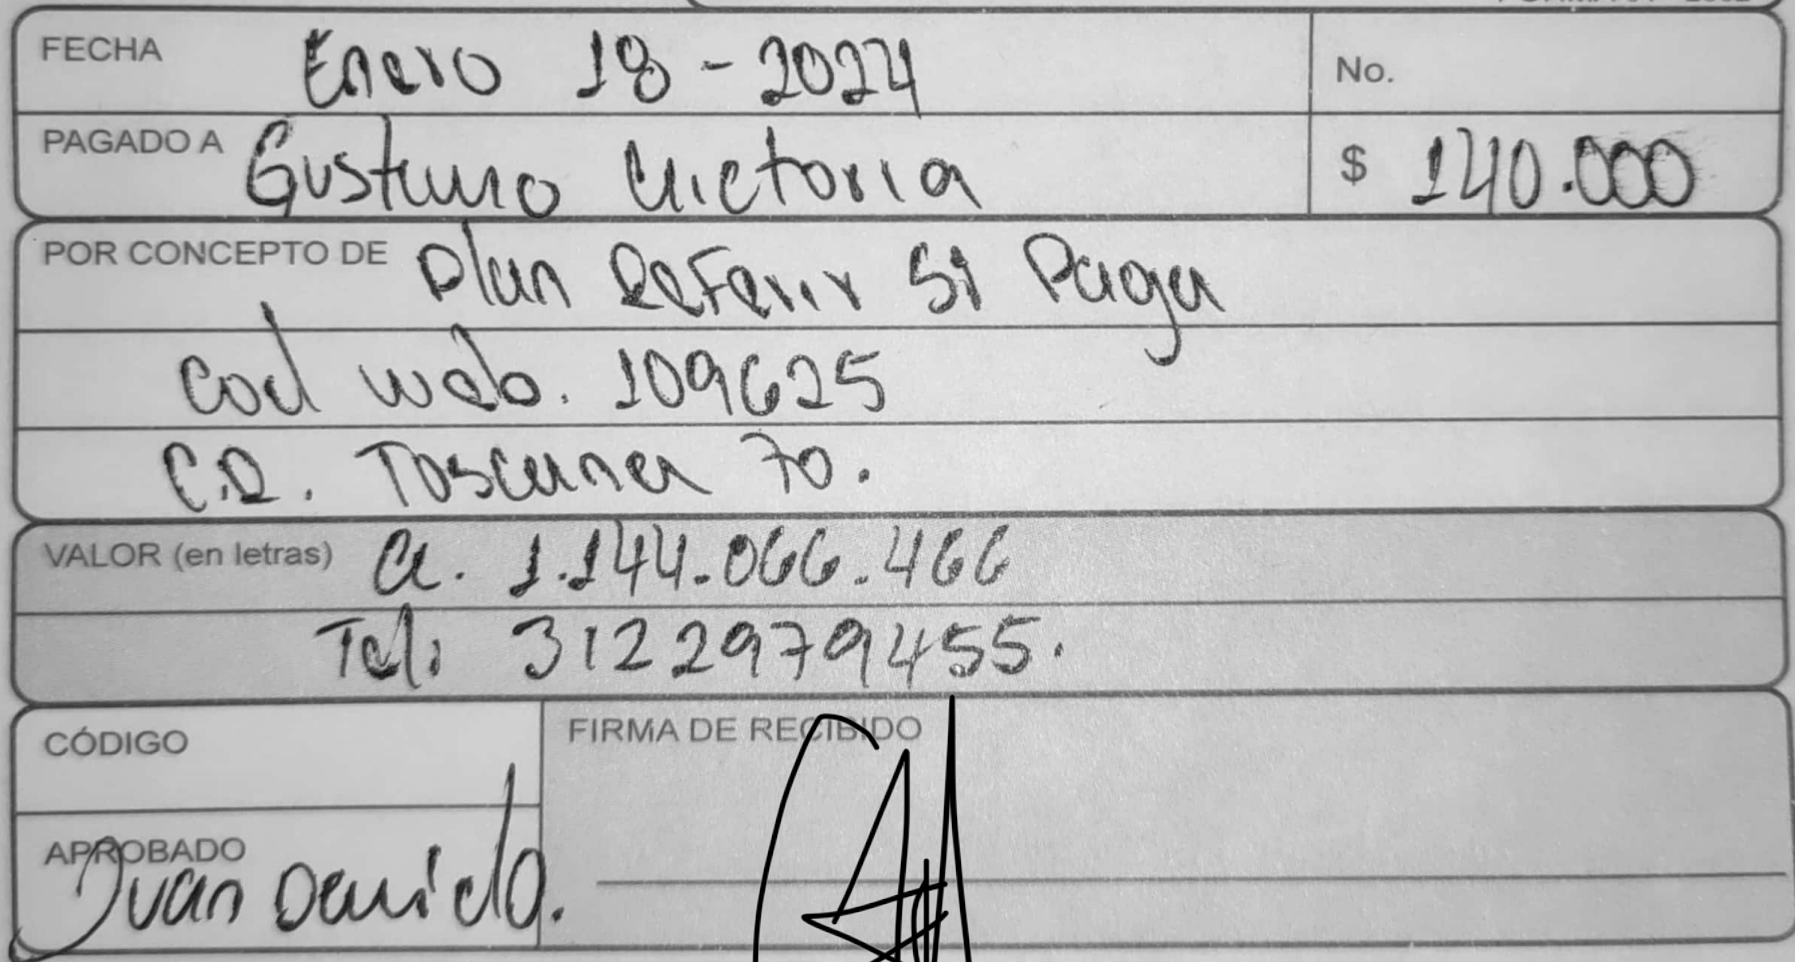 FECHA Enero 18 - 2024 No.
PAGADO A Gustavo Victoria $ 140.000
POR CONCEPTO DE Plan Referir Si Paga
Cod web. 109625
C.R. Toscana 70.
VALOR (en letras) CC. 1.144.066.466
Tel: 3122979455.
CÓDIGO FIRMA DE RECIBIDO
APROBADO
Juan David O.